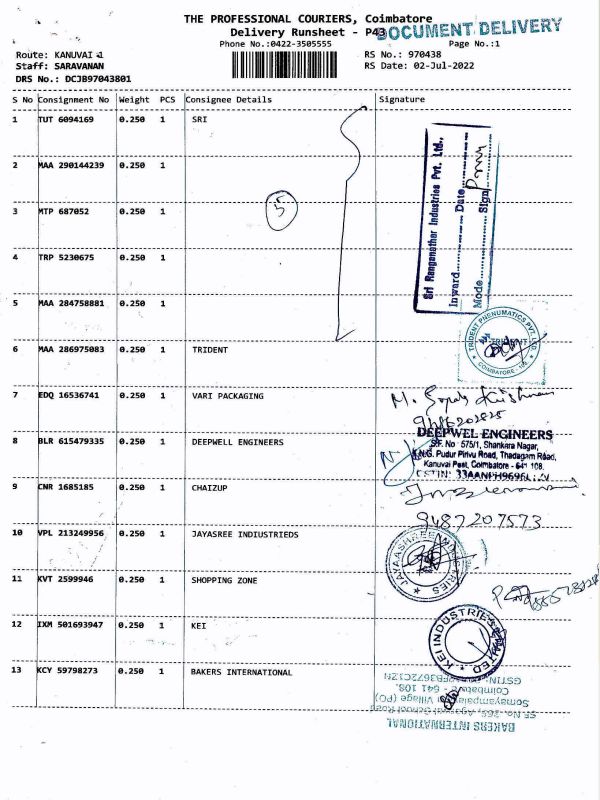 THE PROFESSIONAL COURIERS, Coimbatore
Delivery Runsheet - P43
DOCUMENT DELIVERY
Phone No.:0422-3505555
Page No.:1
Route: KANUVAI 1
RS No.: 970438
Staff: SARAVANAN
RS Date: 02-Jul-2022
DRS No.: DCJB97043801
S No Consignment No Weight PCS Consignee Details Signature
1 TUT 6094169 0.250 1 SRI
2 MAA 290144239 0.250 1
3 MTP 687052 0.250 1
5
4 TRP 5230675 0.250 1
5 MAA 284758881 0.250 1
Sri Ranganathar Industries Pvt. Ltd.,
Inward............Date............
Mode............Sign
6 MAA 286975083 0.250 1 TRIDENT
TRIDENT PNEUMATICS PVT. LTD.
TRIDENT
COIMBATORE
7 EDQ 16536741 0.250 1 VARI PACKAGING
8 BLR 615479335 0.250 1 DEEPWELL ENGINEERS
DEEPWEL ENGINEERS
S.F. No 575/1, Shankara Nagar,
K.N.G. Pudur Pirivu Road, Thadagam Road,
Kanuvai Post, Coimbatore - 641 108.
9 CNR 1685185 0.250 1 CHAIZUP
9487207573
10 VPL 213249956 0.250 1 JAYASREE INDIUSTRIEDS
JAYAASHREE INDUSTRIES
11 KVT 2599946 0.250 1 SHOPPING ZONE
12 IXM 501693947 0.250 1 KEI
KEI INDUSTRIES LIMITED
13 KCY 59798273 0.250 1 BAKERS INTERNATIONAL
BAKERS INTERNATIONAL
Somayampalayam Village (PO)
Coimbatore - 641 108.